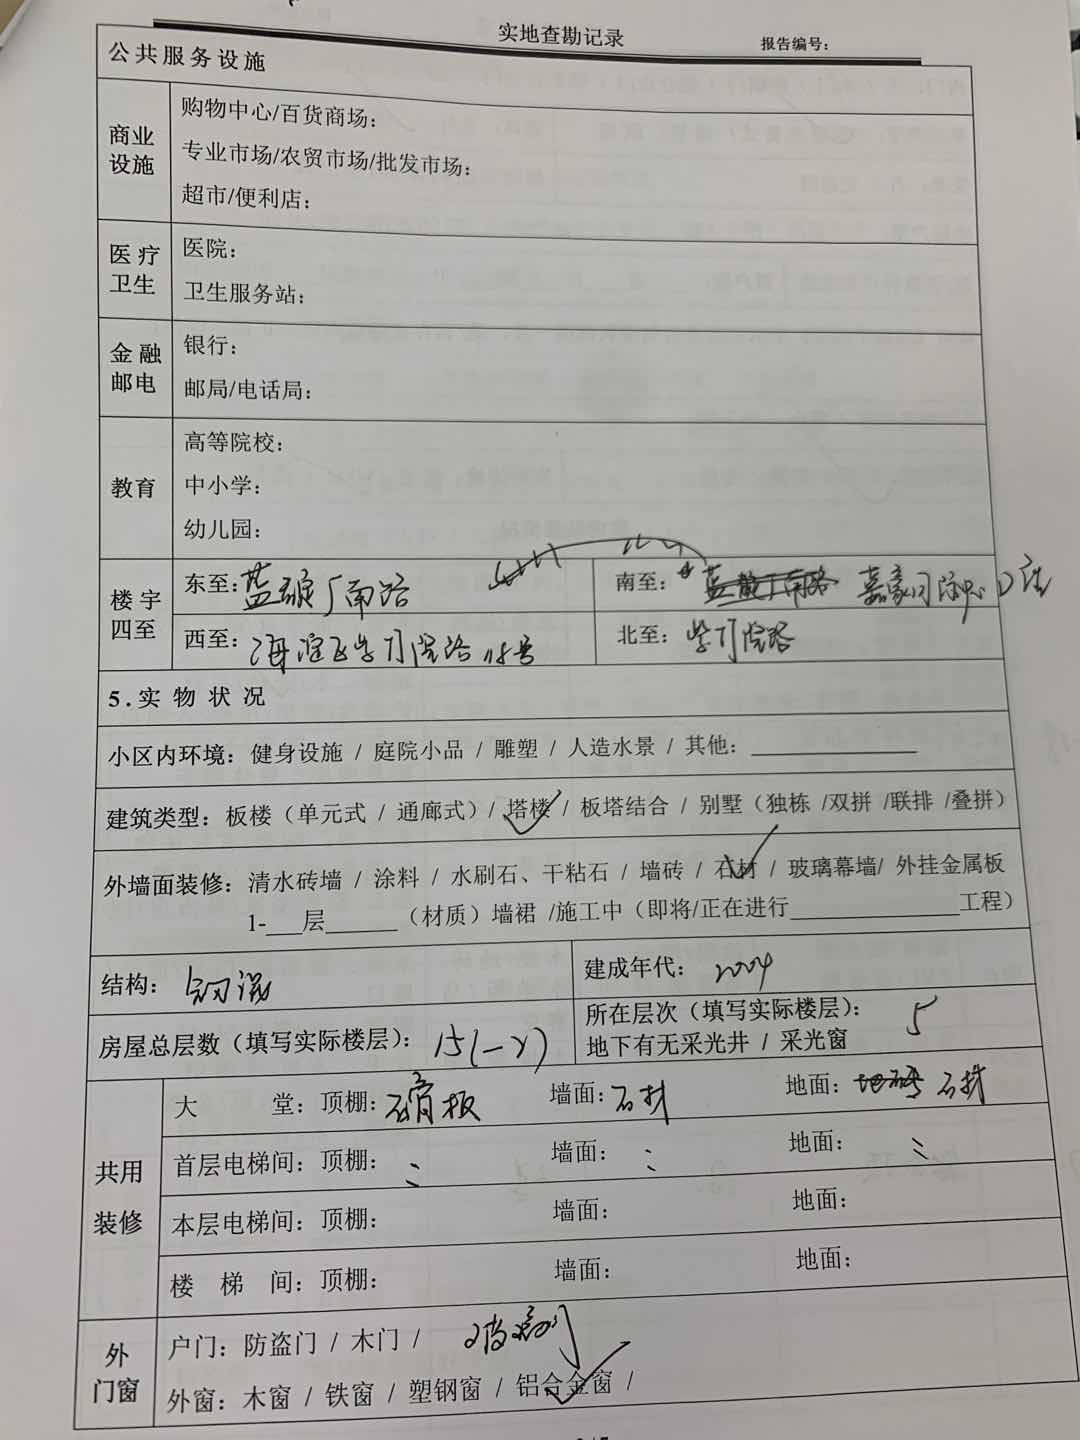 实地查勘记录
报告编号：
公共服务设施
商业设施
购物中心/百货商场：
专业市场/农贸市场/批发市场：
超市/便利店：
医疗卫生
医院：
卫生服务站：
金融邮电
银行：
邮局/电话局：
教育
高等院校：
中小学：
幼儿园：
楼宇四至
东至：蓝靛厂南路
南至：蓝靛厂南路 嘉豪国际中心D座
西至：海淀区学门院路
北至：学门院路
5.实物状况
小区内环境：健身设施 / 庭院小品 / 雕塑 / 人造水景 / 其他：
建筑类型：板楼（单元式 / 通廊式）/ 塔楼 / 板塔结合 / 别墅（独栋 /双拼 /联排 /叠拼）
外墙面装修：清水砖墙 / 涂料 / 水刷石、干粘石 / 墙砖 / 石材 / 玻璃幕墙/ 外挂金属板
1-___层______（材质）墙裙 /施工中（即将/正在进行______________工程）
结构：钢混
建成年代：2004
房屋总层数（填写实际楼层）：15(-2)
所在层次（填写实际楼层）：5
地下有无采光井 / 采光窗
共用装修
大 堂：顶棚：石膏板 墙面：石材 地面：地砖 石材
首层电梯间：顶棚：〃 墙面：〃 地面：〃
本层电梯间：顶棚： 墙面： 地面：
楼 梯 间：顶棚： 墙面： 地面：
外门窗
户门：防盗门 / 木门 / 玻璃门
外窗：木窗 / 铁窗 / 塑钢窗 / 铝合金窗 /